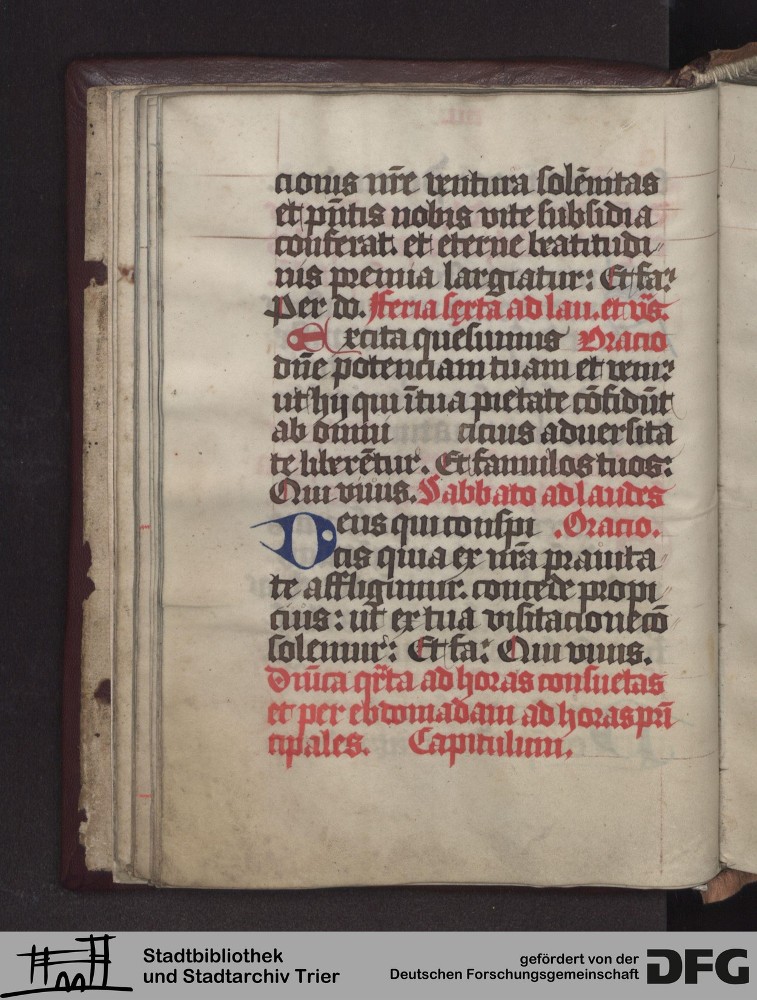 cionis nr̄e ventura solēnitas
et pn̄tis nobis vite subsidia
conferat. et eterne beatitudi
nis premia largiatur: Et fa:
Per do. Feria sexta ad lau. et vs̄.
Excita quesumus Oracio
dn̄e potenciam tuam et veni:
ut hij qui ī tua pietate cōfidūt
ab omni citius aduersita
te liberētur. Et famulos tuos:
Qui viuis. Sabbato ad laudes
Deus qui conspi .Oracio.
cis quia ex nr̄a prauita
te affligimur. concede propi
cius: ut ex tua visitacione cō
solemur: Et fa: Qui viuis.
Dn̄ica qr̄ta ad horas consuetas
et per ebdomadam ad horas prī
cipales. Capitulum.
Stadtbibliothek
und Stadtarchiv Trier
gefördert von der
Deutschen Forschungsgemeinschaft
DFG